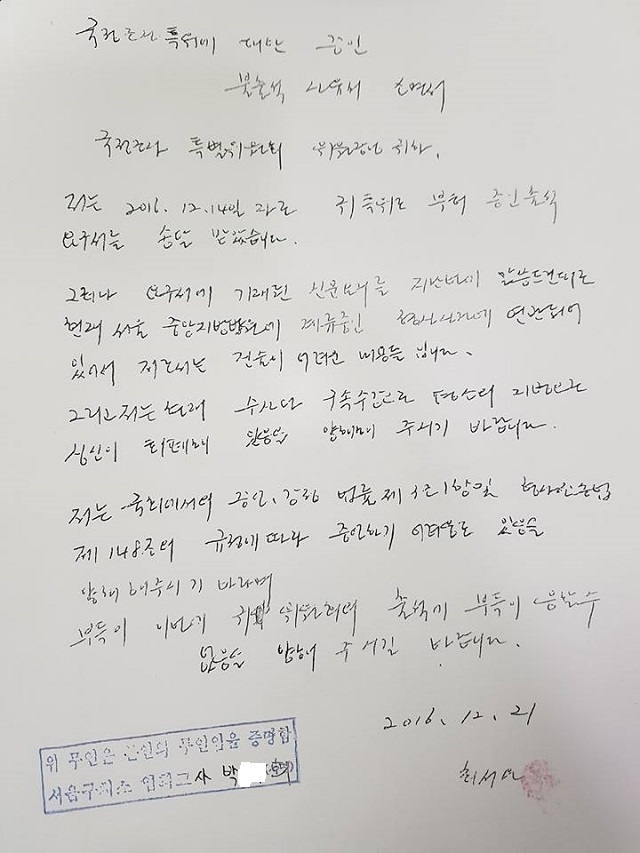 국정조사 특위에 대한 증인
불출석 사유서 소명서
국정조사 특별위원회 위원장님 귀하.
저는 2016. 12. 14일 자로 귀 특위로 부터 증인출석
요구서를 송달 받았습니다.
그러나 요구서에 기재된 신문요지를 지난번에 말씀드린대로
현재 서울 중앙지방법원에 계류중인 형사사건에 연관되어
있어서 저로서는 진술이 어려운 내용들 입니다.
그리고 저는 현재 수사와 구속수감으로 평소의 지병으로
심신이 피폐해 있음을 양해해 주시기 바랍니다.
저는 국회에서의 증언, 감정 법률 제 3조 1항 및 형사소송법
제 148조의 규정에 따라 증언하기 어려움도 있음을
양해 해주시기 바라며
부득이 이번에 귀 위원회의 출석에 부득이 응할 수
없음을 양해 주시길 바랍니다.
2016. 12. 21
최서원
위 무인은 본인의 무인임을 증명함
서울구치소 교사 박